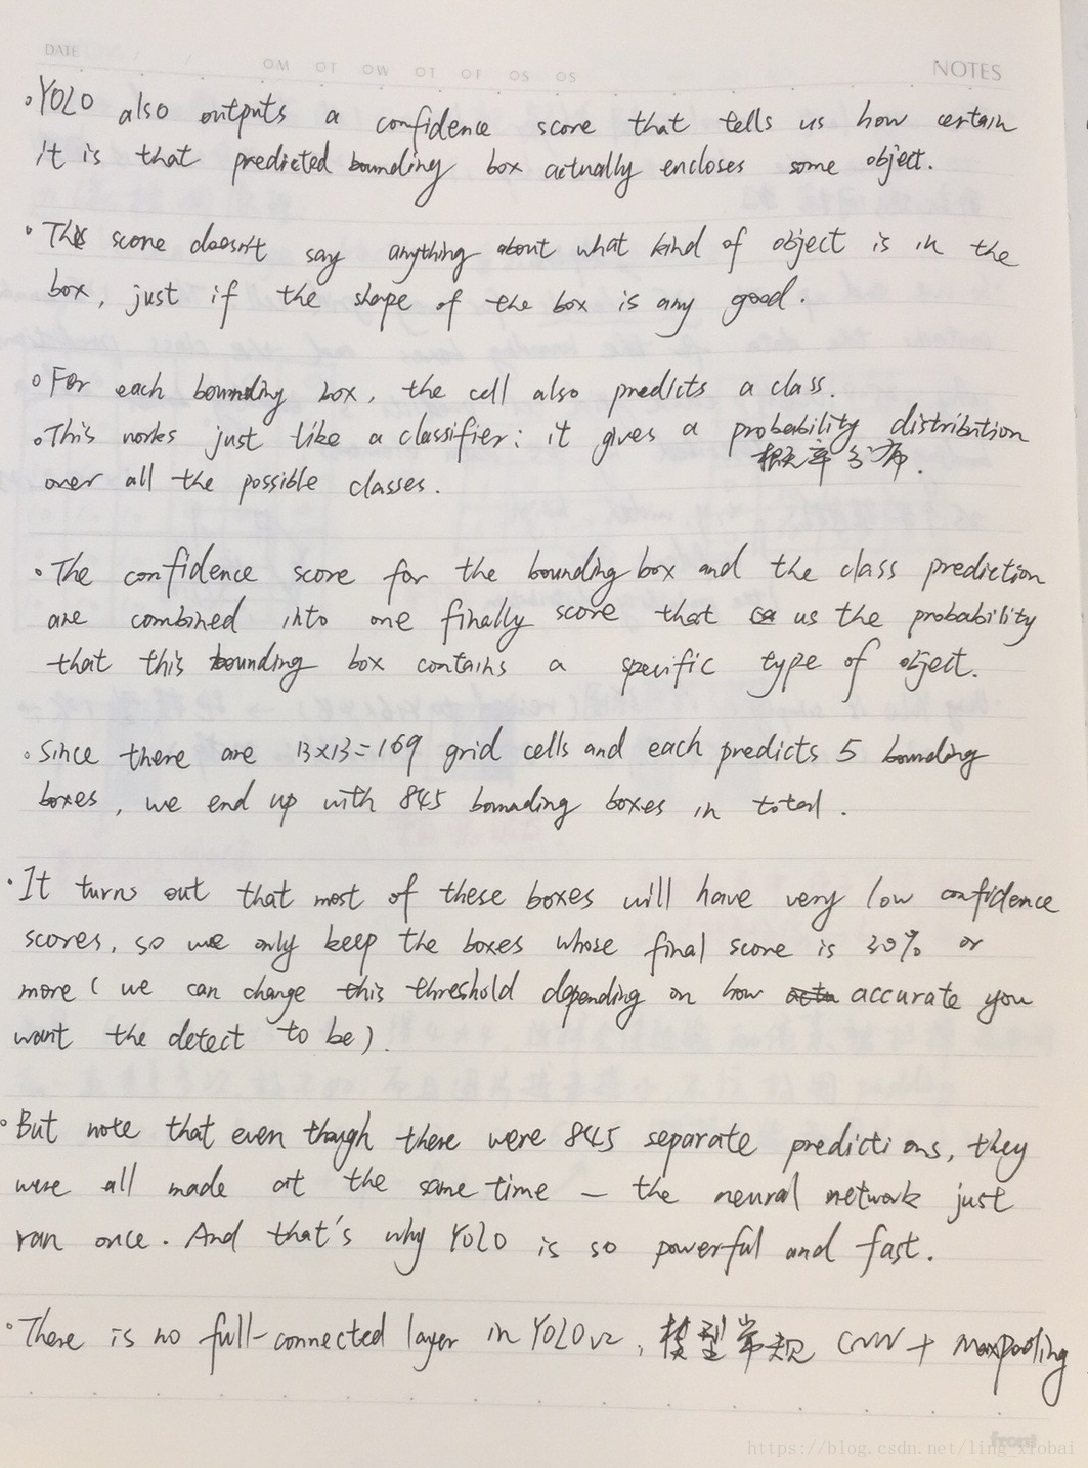 DATE
OM OT OW OT OF OS OS
NOTES
◦YOLO also outputs a confidence score that tells us how certain
it is that predicted bounding box actually encloses some object.
• This score doesn't say anything about what kind of object is in the
box, just if the shape of the box is any good.
◦For each bounding box, the cell also predicts a class.
◦This works just like a classifier: it gives a probability distribution
概率分布.
over all the possible classes.
• The confidence score for the bounding box and the class prediction
are combined into one finally score that us the probability
that this bounding box contains a specific type of object.
◦ Since there are 13x13=169 grid cells and each predicts 5 bounding
boxes, we end up with 845 bounding boxes in total.
• It turns out that most of these boxes will have very low confidence
scores, so we only keep the boxes whose final score is 30% or
more ( we can change this threshold depending on how accurate you
want the detect to be).
◦ But note that even though there were 845 separate predictions, they
were all made at the same time — the neural network just
ran once. And that's why YOLO is so powerful and fast.
• There is no full-connected layer in YOLO v2, 模型常规 CNN + Maxpooling
front
https://blog.csdn.net/ling_xiobai